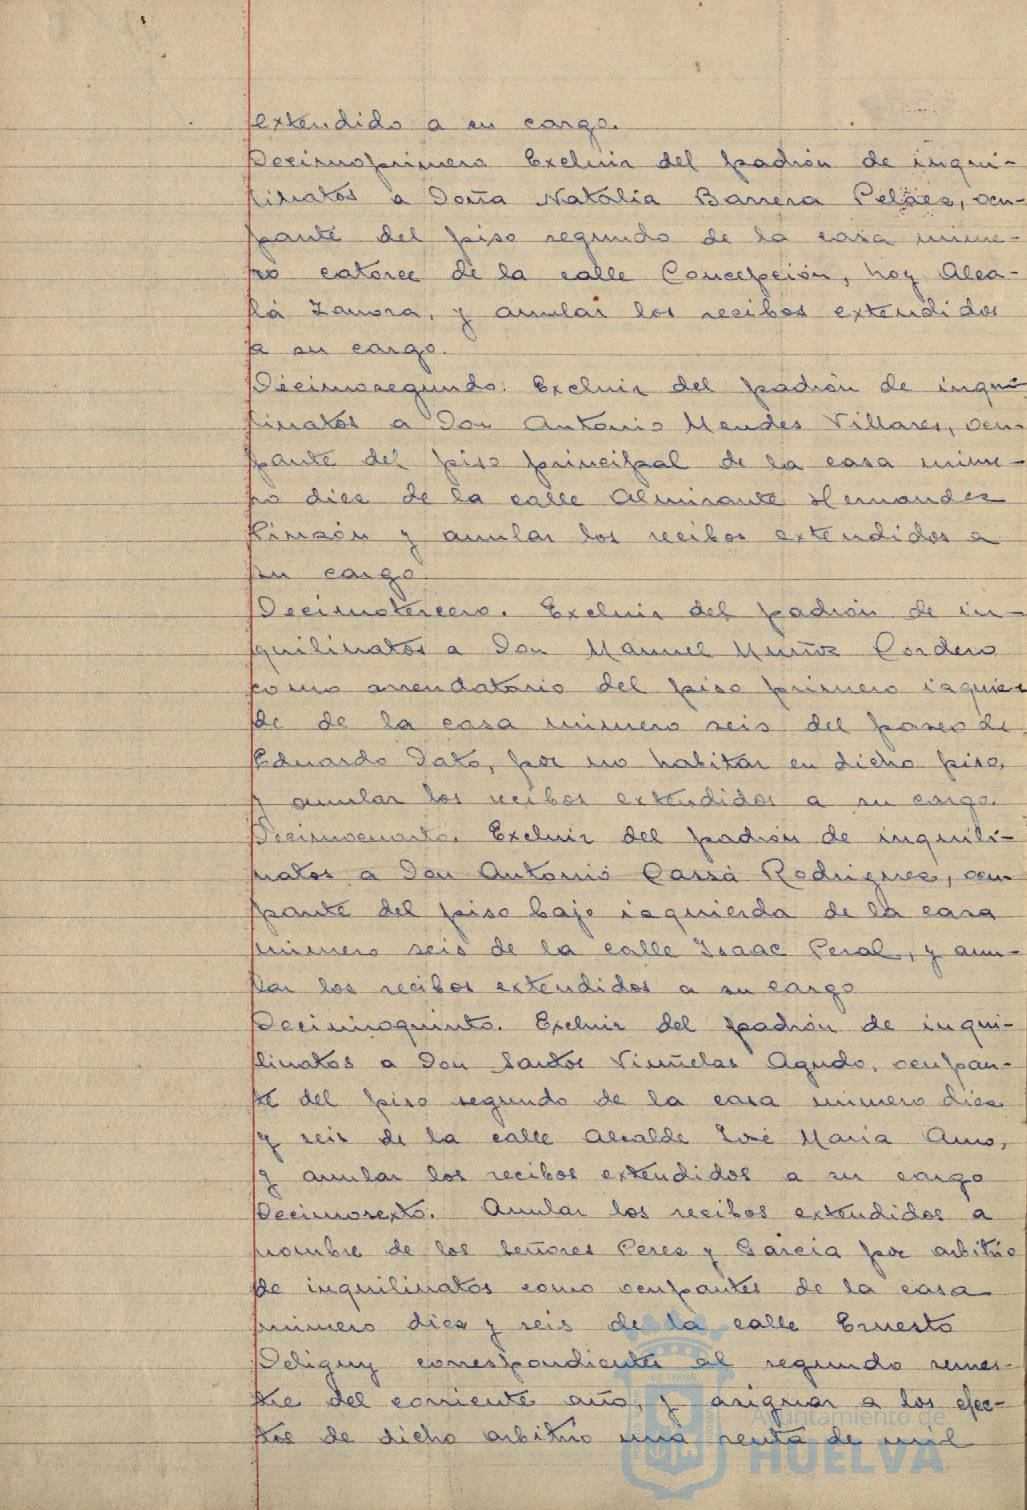 extendido a su cargo.
Decimoprimero Excluir del padrón de inqui-
linatos a Doña Natalia Barrera Pelaez, ocu-
pante del piso segundo de la casa núme-
ro catorce de la calle Concepción, hoy Alca-
lá Zamora, y anular los recibos extendidos
a su cargo.
Décimosegundo. Excluir del padrón de inqui-
linatos a Don Antonio Mendes Villares, ocu-
pante del piso principal de la casa núme-
ro diez de la calle Almirante Hernandez
Pinzón y anular los recibos extendidos a
su cargo.
Decimotercero. Excluir del padrón de in-
quilinatos a Don Manuel Muñoz Cordero
como arrendatario del piso primero izquier
de de la casa número seis del paseo de
Eduardo Dato, por no habitar en dicho piso,
y anular los recibos extendidos a su cargo.
Decimocuarto. Excluir del padrón de inquili-
natos a Don Antonio Cassá Rodriguez, ocu-
pante del piso bajo izquierda de la casa
número seis de la calle Isaac Peral, y anu-
lar los recibos extendidos a su cargo
Decimoquinto. Excluir del padrón de inqui-
linatos a Don Santos Viñuelas Agudo, ocupan-
te del piso segundo de la casa número diez
y seis de la calle Alcalde José María Amo,
y anular los recibos extendidos a su cargo
Decimosexto. Anular los recibos extendidos a
nombre de los Señores Perez y Garcia por arbitrio
de inquilinatos como ocupantes de la casa
número diez y seis de la calle Ernesto
Deligny correspondientes al segundo semes-
tre del corriente año, y asignar a los efec-
tos de dicho arbitrio una renta de mil
Ayuntamiento de
HUELVA